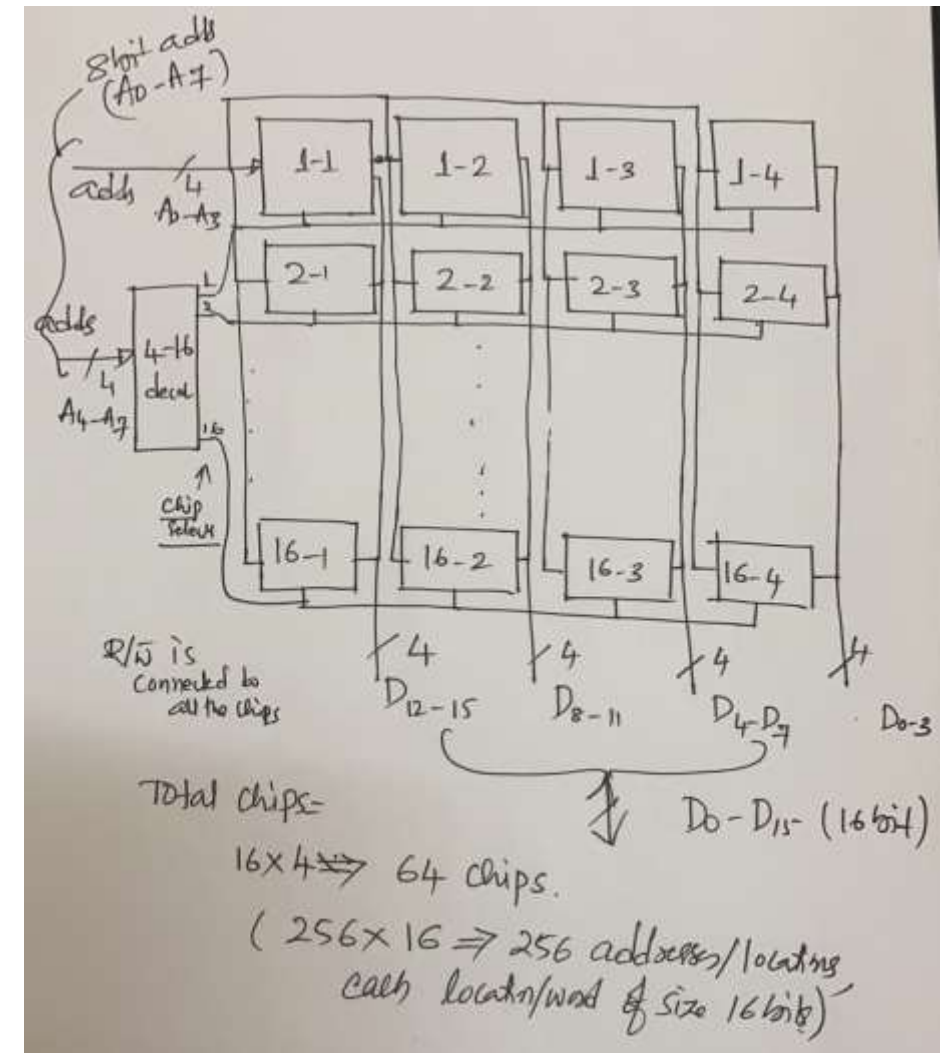 8bit adds
(A0-A7)
adds
4
A0-A3
1-1
1-2
1-3
1-4
2-1
2-2
2-3
2-4
1
2
16
adds
4
A4-A7
4-16
decod
chip
select
16-1
16-2
16-3
16-4
R/W̅ is
connected to
all the chips
4
4
4
4
D12-15
D8-11
D4-D7
D0-3
D0-D15-(16bit)
Total chips=
16×4⇒ 64 chips.
(256×16 ⇒ 256 addresses/locatns
each locatn/word of size 16bits)